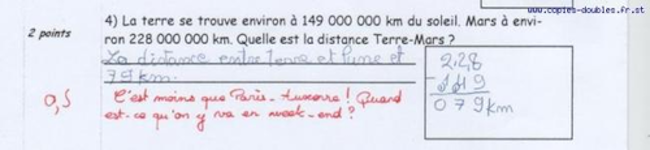 www.copies-doubles.fr.st
2 points
4) La terre se trouve environ à 149 000 000 km du soleil. Mars à envi-
ron 228 000 000 km. Quelle est la distance Terre-Mars ?
La distance entre Terre et et
79 km.
0,5
C'est moins que Paris-Auxerre ! Quand
est-ce qu'on y va en week-end ?
228
- 149
079 km